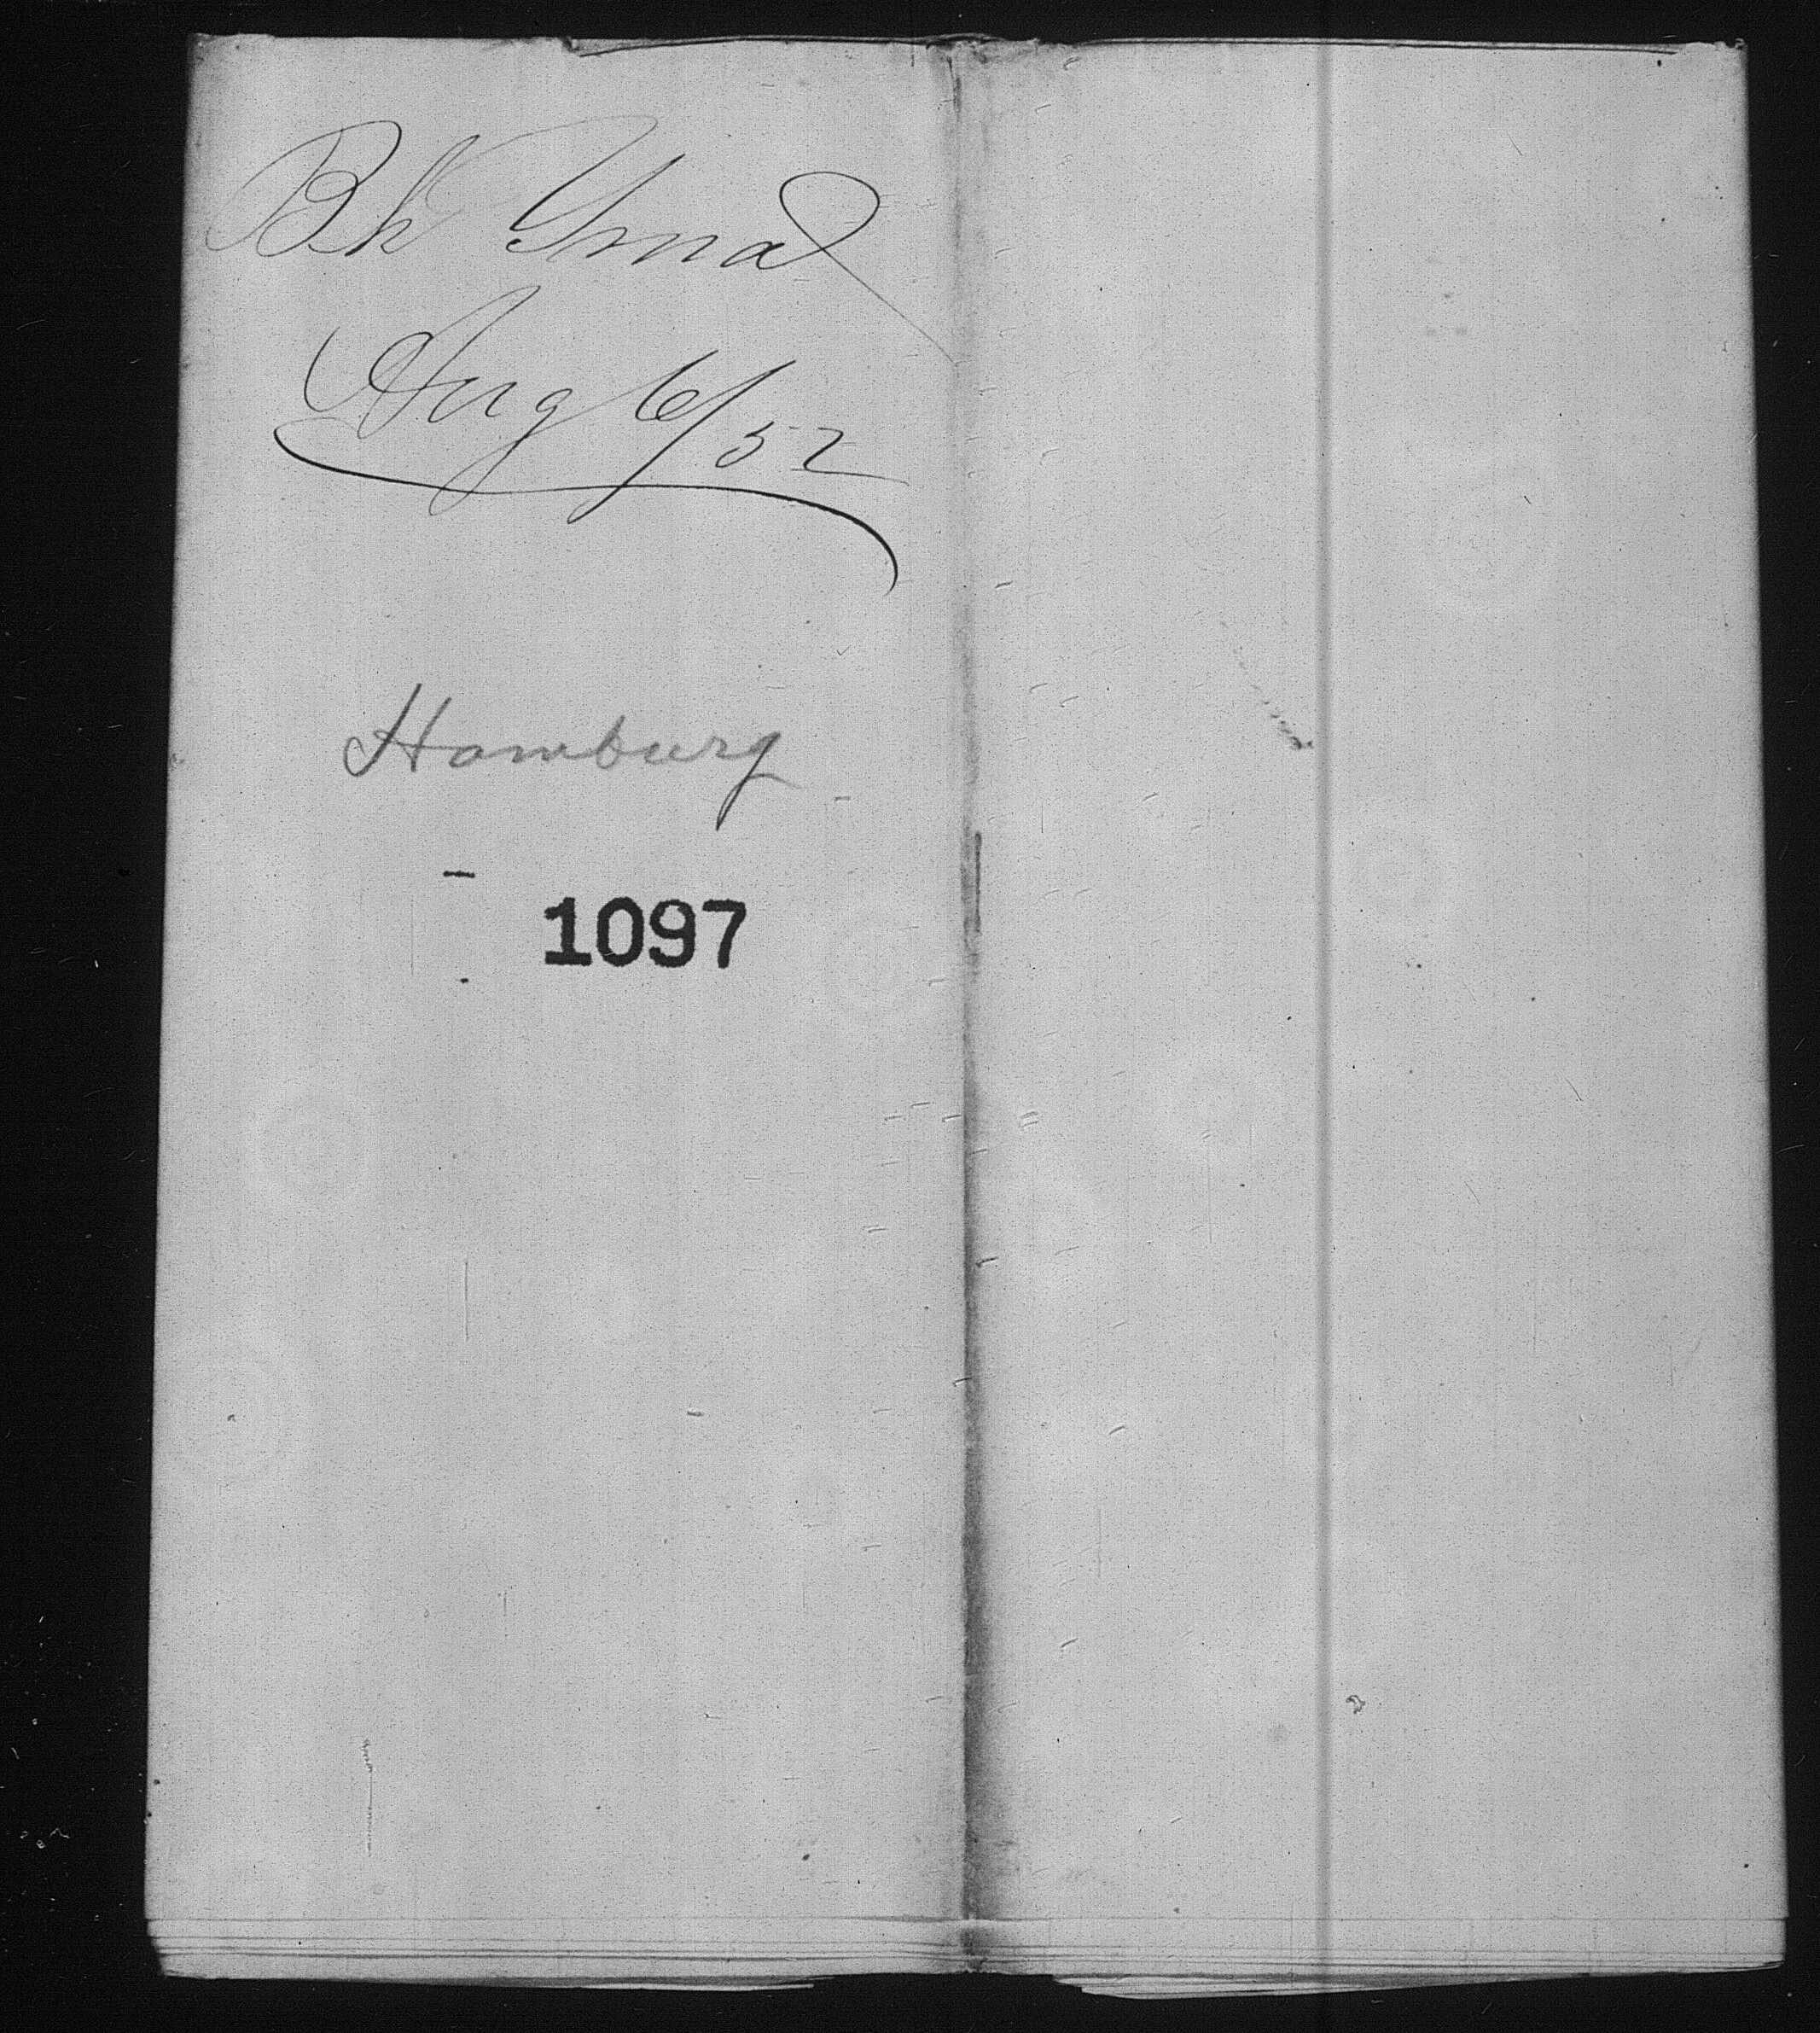 Bk Irma
Aug 6/52
Hamburg
1097